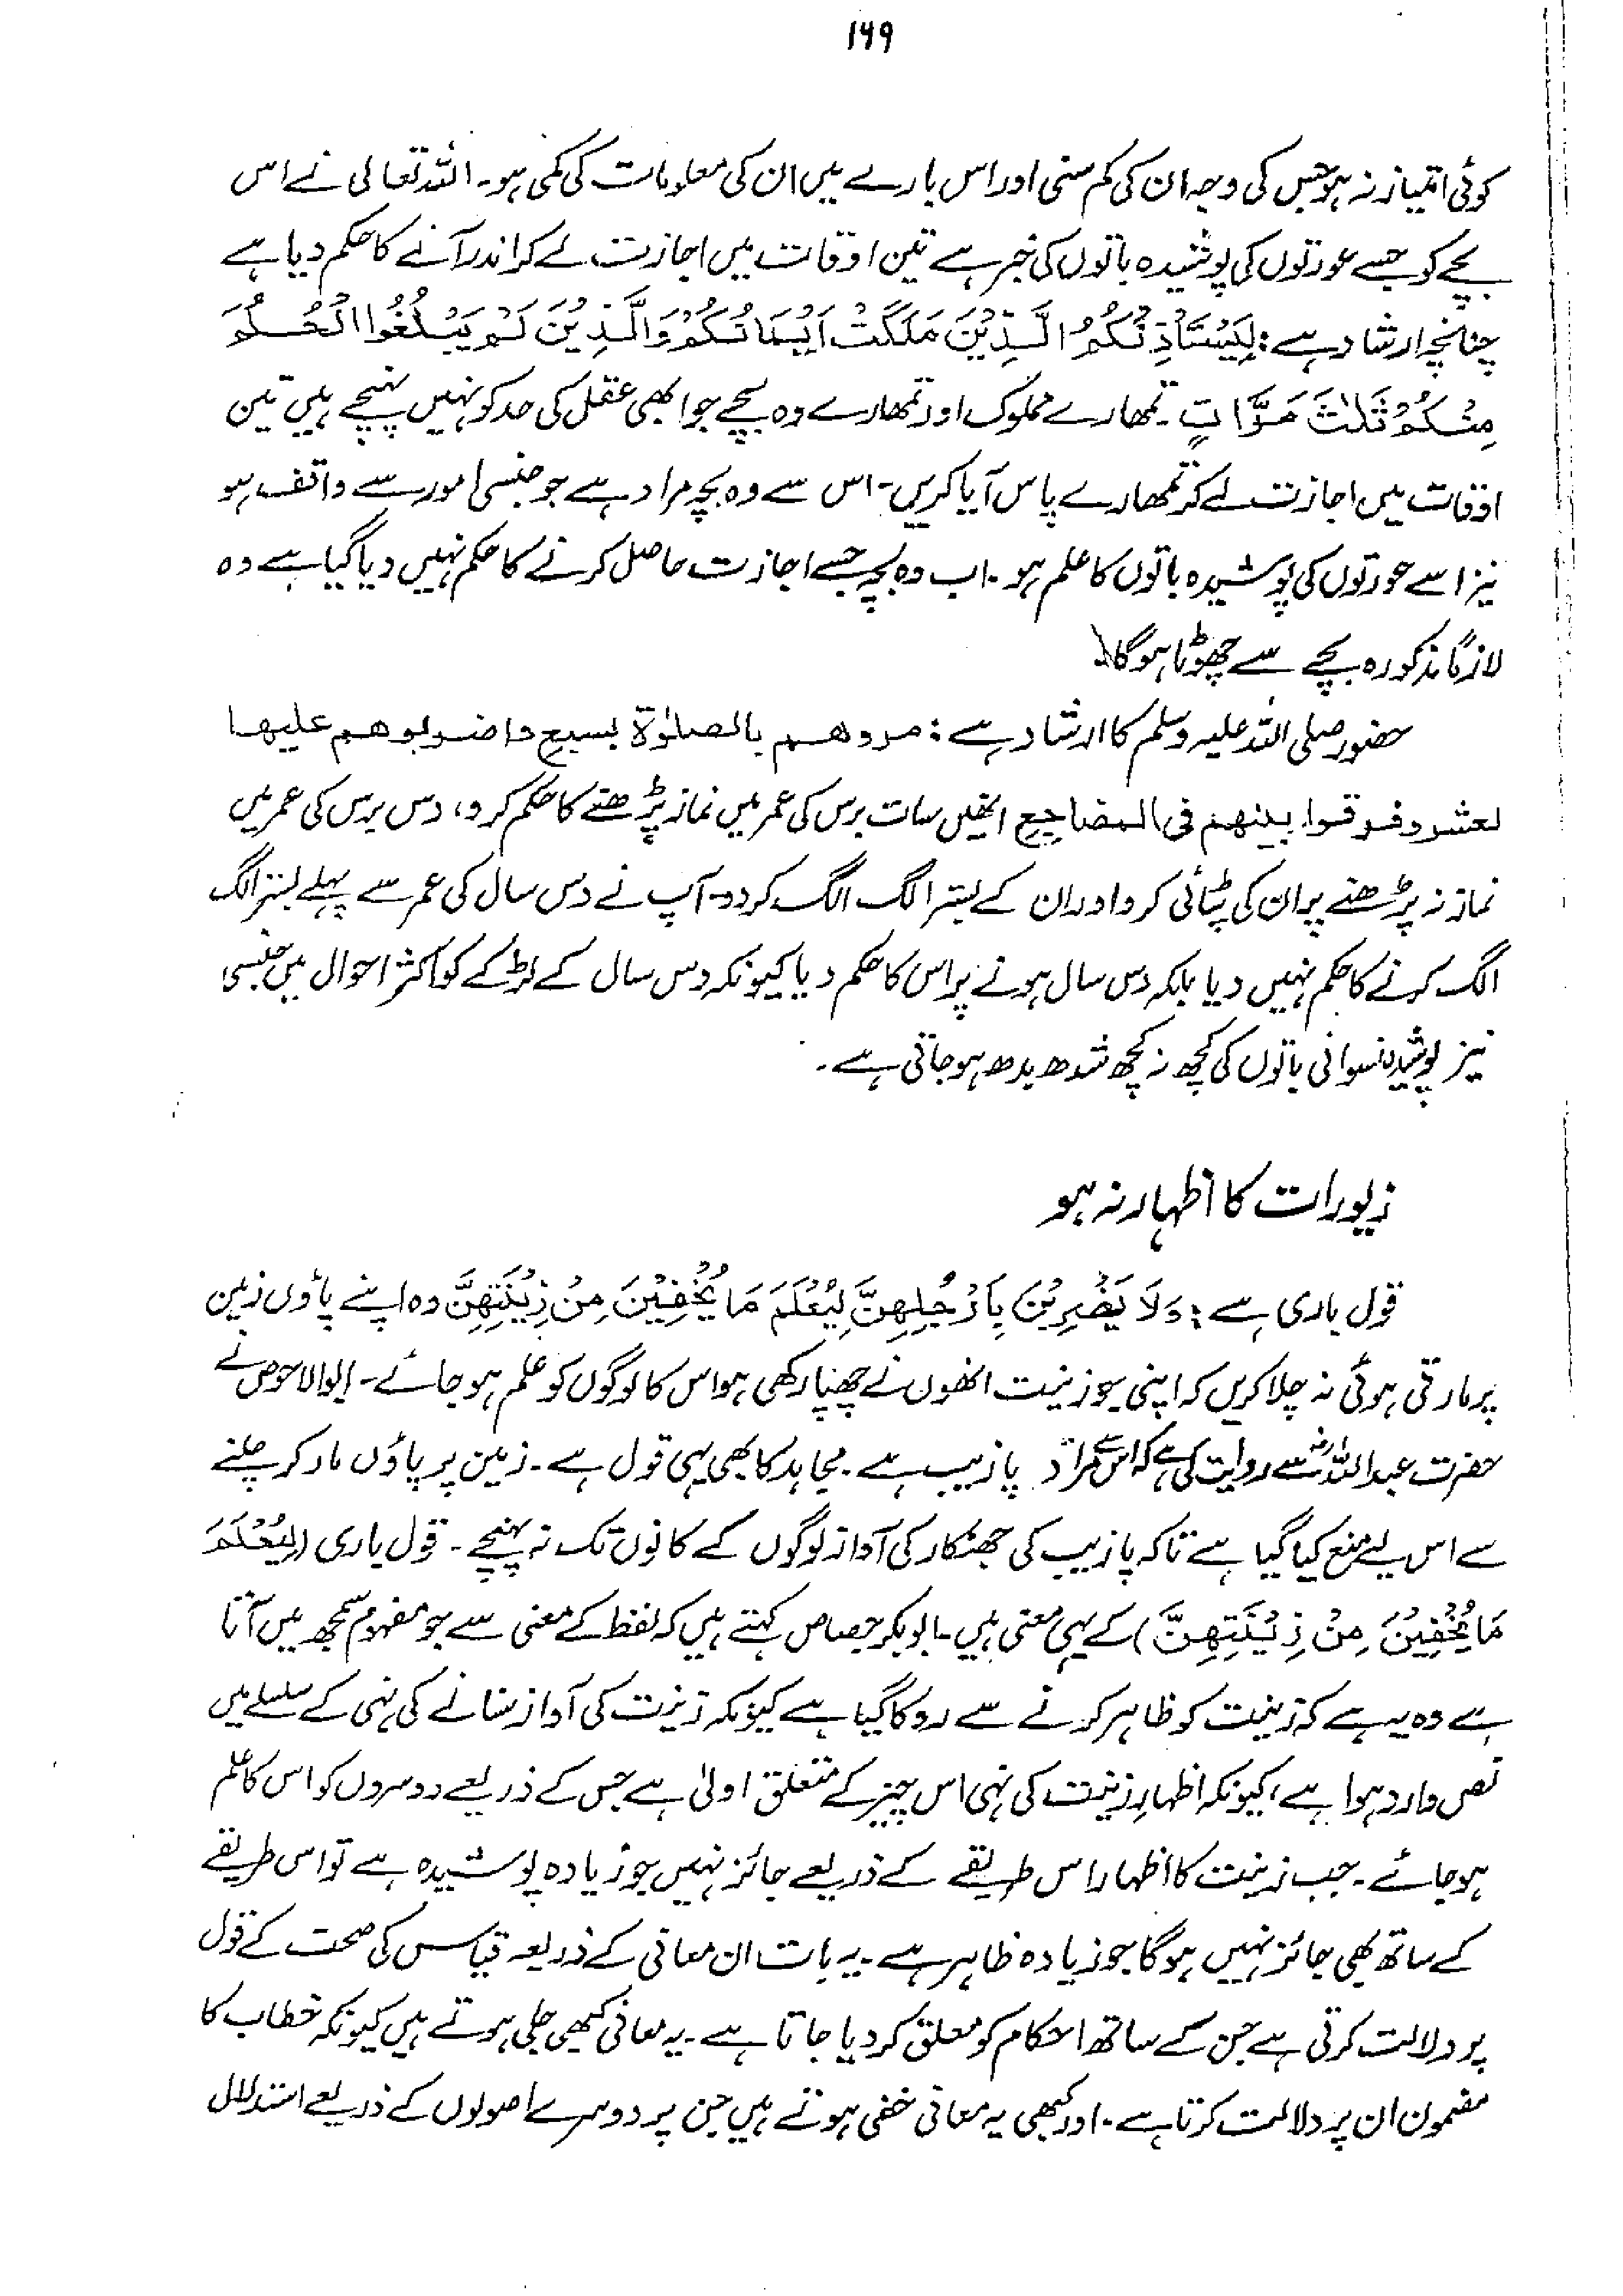 ۱۶۹
کوئی امتیاز نہ ہو جس کی وجہ ان کی کم سنی اور اس بارے میں ان کی معلومات کی کمی ہو۔ اللہ تعالیٰ نے اس
بچے کو جسے عورتوں کی پوشیدہ باتوں کی خبر ہے تین اوقات میں اجازت لے کر اندر آنے کا حکم دیا ہے
چنانچہ ارشاد ہے : لِيَسْتَأْذِنْكُمُ الَّذِيْنَ مَلَكَتْ اَيْمَانُكُمْ وَالَّذِيْنَ لَمْ يَبْلُغُوا الْحُلُمَ
مِنْكُمْ ثَلٰثَ مَرَّاتٍ ۔ تمھارے مملوک اور تمھارے وہ بچے جو ابھی عقل کی حد کو نہیں پہنچے ہیں تین
اوقات میں اجازت لے کر تمھارے پاس آیا کریں۔ اس سے وہ بچہ مراد ہے جو جنسی امور سے واقف ہو
نیز اسے عورتوں کی پوشیدہ باتوں کا علم ہو۔ اب وہ بچہ جسے اجازت حاصل کرنے کا حکم نہیں دیا گیا ہے وہ
لازماً مذکورہ بچے سے چھوٹا ہوگا۔
حضور صلی اللہ علیہ وسلم کا ارشاد ہے : مروھم بالصلوٰۃ بسبع واضربوھم علیھا
لعشر وفرقوا بینھم فی المضاجع انھیں سات برس کی عمر میں نماز پڑھنے کا حکم کرو، دس برس کی عمر میں
نماز نہ پڑھنے پر ان کی پٹائی کرو اور ان کے بستر الگ الگ کر دو۔ آپ نے دس سال کی عمر سے پہلے بستر الگ
الگ کرنے کا حکم نہیں دیا بلکہ دس سال ہونے پر اس کا حکم دیا کیونکہ دس سال کے لڑکے کو اکثر احوال میں جنسی
نیز پوشیدہ نسوانی باتوں کی کچھ نہ کچھ شدھ بدھ ہو جاتی ہے۔
زیورات کا اظہار نہ ہو
قول باری ہے : وَلَا يَضْرِبْنَ بِاَرْجُلِهِنَّ لِيُعْلَمَ مَا يُخْفِيْنَ مِنْ زِيْنَتِهِنَّ وہ اپنے پاؤں زمین
پر مارتی ہوئی نہ چلا کریں کہ اپنی جو زینت انھوں نے چھپا رکھی ہو اس کا لوگوں کو علم ہو جائے۔ ابوالاحوص نے
حضرت عبداللہؓ سے روایت کی ہے کہ اس سے مراد پازیب ہے۔ مجاہد کا بھی یہی قول ہے۔ زمین پر پاؤں مار کر چلنے
سے اس لیے منع کیا گیا ہے تاکہ پازیب کی جھنکار کی آواز لوگوں کے کانوں تک نہ پہنچے۔ قول باری (لِيُعْلَمَ
مَا يُخْفِيْنَ مِنْ زِيْنَتِهِنَّ) کے یہی معنی ہیں۔ ابوبکر جصاص کہتے ہیں کہ لفظ کے معنی سے جو مفہوم سمجھ میں آتا
ہے وہ یہ ہے کہ زینت کو ظاہر کرنے سے روکا گیا ہے کیونکہ زینت کی آواز سنانے کی نہی کے سلسلے میں
نص وارد ہوا ہے، کیونکہ اظہارِ زینت کی نہی اس چیز کے متعلق اولیٰ ہے جس کے ذریعے دوسروں کو اس کا علم
ہو جائے۔ جب زینت کا اظہار اس طریقے کے ذریعے جائز نہیں جو زیادہ پوشیدہ ہے تو اس طریقے
کے ساتھ بھی جائز نہیں ہوگا جو زیادہ ظاہر ہے۔ یہ بات ان معانی کے ذریعہ قیاس کی صحت کے قول
پر دلالت کرتی ہے جن کے ساتھ احکام کو معلق کر دیا جاتا ہے۔ یہ معانی کبھی جلی ہوتے ہیں کیونکہ خطاب کا
مضمون ان پر دلالت کرتا ہے۔ اور کبھی یہ معانی خفی ہوتے ہیں جن پر دوسرے اصولوں کے ذریعے استدلال